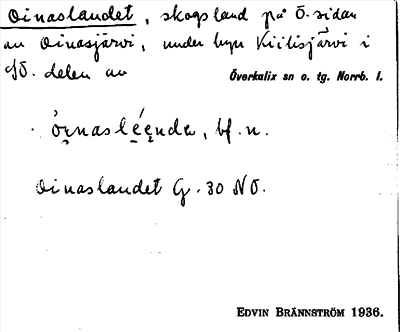 Oinaslandet, skogsland på Ö. sidan
av Oinasjärvi, under byn Kiilisjärvi i
SÖ. delen av Överkalix sn o. tg. Norrb. l.
Oinaslandet G. 30 NO.
EDVIN BRÄNNSTRÖM 1936.